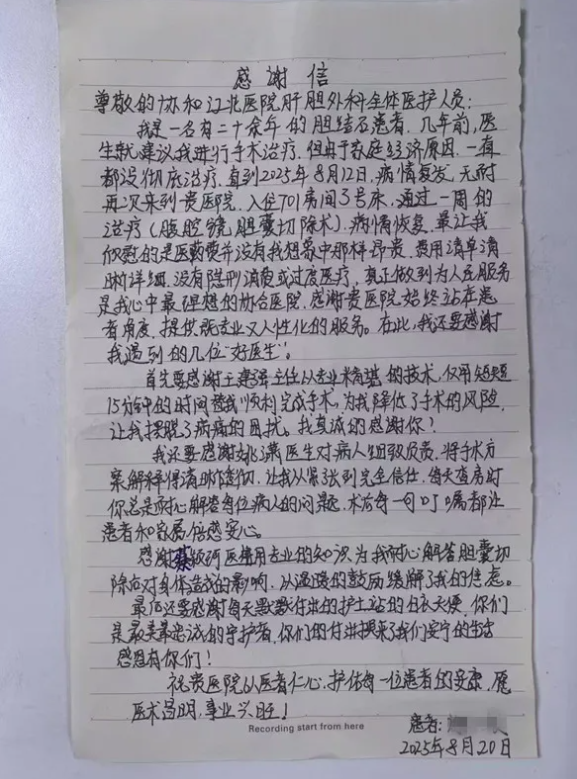 感谢信
尊敬的协和江北医院肝胆外科全体医护人员:
我是一名有二十余年的胆结石患者,几年前,医
生就建议我进行手术治疗,但由于家庭经济原因,一直
都没彻底治疗,直到2025年8月12日,病情复发,无耐
再次来到贵医院,入住701房间3号床,通过一周的
治疗(腹腔镜,胆囊切除术),病情恢复,最让我
欣慰的是医药费并没有我想象中那样昂贵,费用清单清
晰详细,没有隐形消费或过度医疗,真正做到为人民服务
是我心中最理想的协合医院,感谢贵医院始终站在患
者角度,提供既专业又人性化的服务。在此,我还要感谢
我遇到的几位"好医生"。
首先要感谢王建强主任以专业精湛的技术,仅用短短
15分钟的时间替我顺利完成手术,为我降低了手术的风险,
让我摆脱了病痛的困扰。我真诚的感谢你!
我还要感谢姚潇医生对病人细致负责,将手术方
案解释得清晰透彻,让我从紧张到完全信任,每天查房时
你总是耐心解答每位病人的问题,术后每一句叮嘱都让
患者和家属倍感安心。
感谢蔡 医 用专业的知识,为我耐心解答胆囊切
除后对身体造成的影响,以温暖的鼓励缓解了我的焦虑。
最后还要感谢每天默默付出的护士站的白衣天使,你们
是最美最忠诚的守护者,你们的付出换来了我们安宁的生活
感恩有你们!
祝贵医院以医者仁心,护佑每一位患者的安康,愿
医术昌明,事业兴旺!
患者:
2025年8月20日
Recording start from here